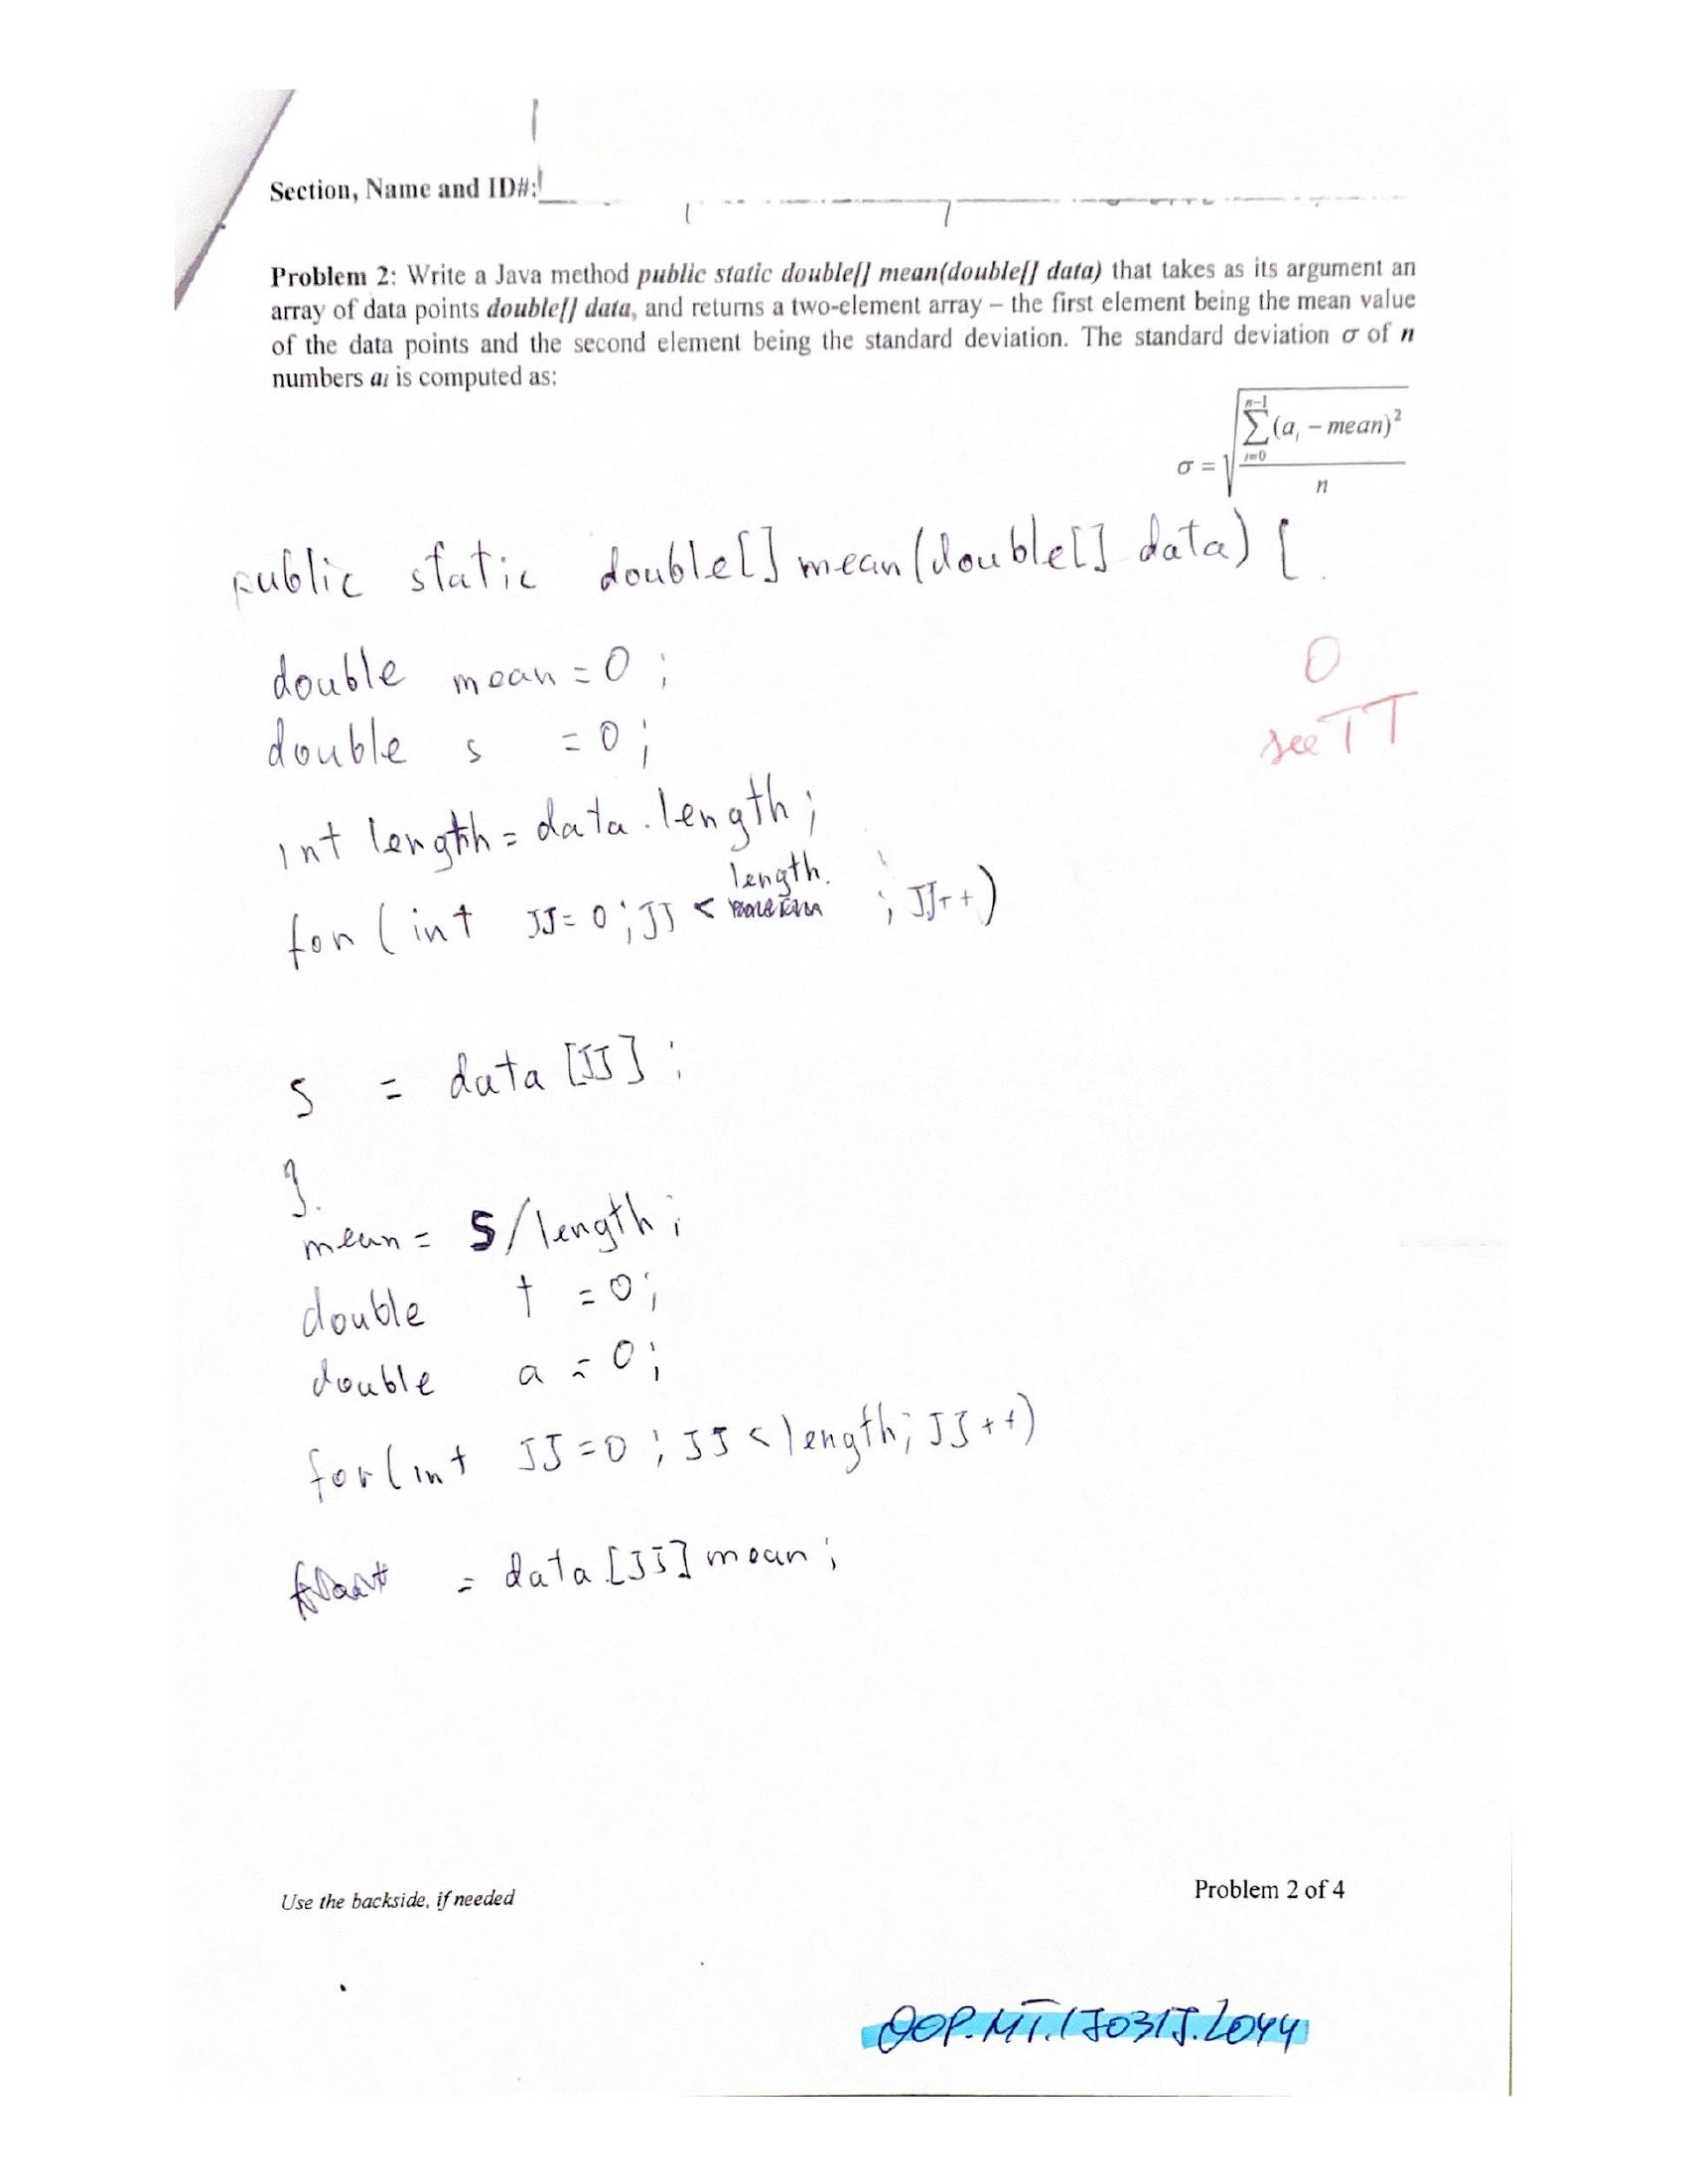 Section, Name and ID#:
Problem 2: Write a Java method public static double[] mean(double[] data) that takes as its argument an
array of data points double[] data, and returns a two-element array – the first element being the mean value
of the data points and the second element being the standard deviation. The standard deviation σ of n
numbers aᵢ is computed as:
σ = √(∑_{i=0}^{n-1} (aᵢ – mean)² / n)
public static double[] mean(double[] data) {
double mean = 0 ;
0
double s = 0 ;
see TT
int length = data.length ;
length.
for (int JJ = 0 ; JJ < ; JJ++)
s = data [JJ] ;
}.
mean = s/length ;
double t = 0 ;
double a = 0 ;
for (int JJ = 0 ; JJ < length ; JJ++)
= data [JJ] mean ;
Use the backside, if needed
Problem 2 of 4
OOP.MT.170317.2044